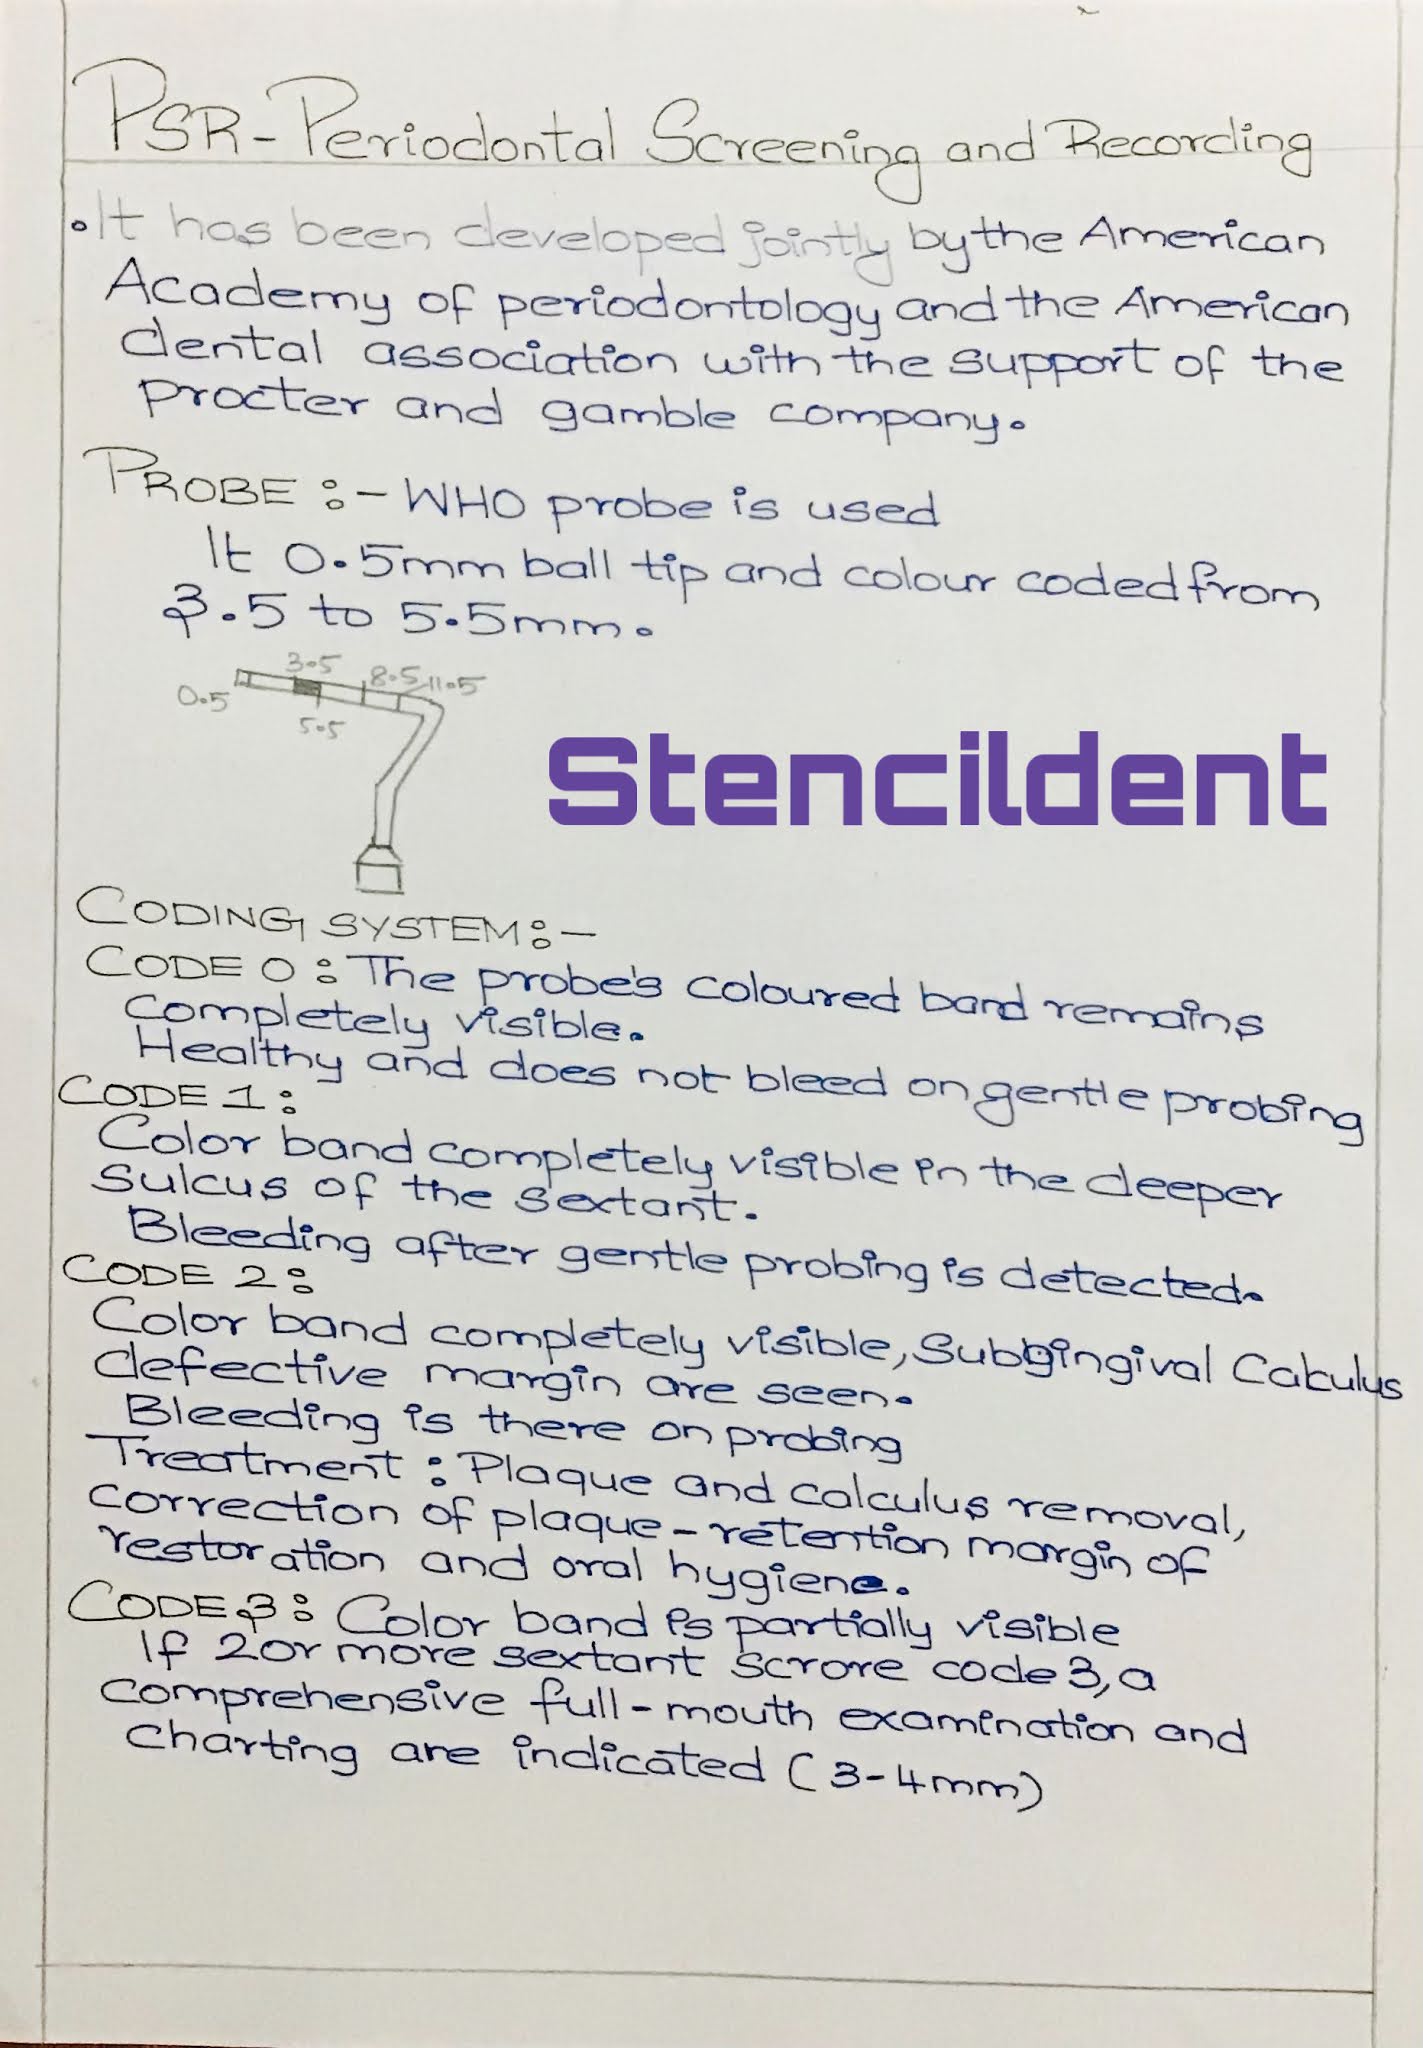 PSR-Periodontal Screening and Recording
•It has been developed jointly by the American
Academy of periodontology and the American
dental association with the support of the
procter and gamble company.
PROBE :- WHO probe is used
It 0.5mm ball tip and colour coded from
3.5 to 5.5mm.
3.5
8.5
11.5
0.5
5.5
Stencildent
CODING SYSTEM:-
CODE 0 : The probe's coloured band remains
completely visible.
Healthy and does not bleed on gentle probing
CODE 1:
Color band completely visible in the deeper
sulcus of the sextant.
Bleeding after gentle probing is detected.
CODE 2:
Color band completely visible, Subgingival Calculus
defective margin are seen.
Bleeding is there on probing
Treatment : Plaque and calculus removal,
correction of plaque-retention margin of
restoration and oral hygiene.
CODE 3: Color band is partially visible
If 2 or more sextant scrore code 3, a
comprehensive full-mouth examination and
charting are indicated (3-4mm)